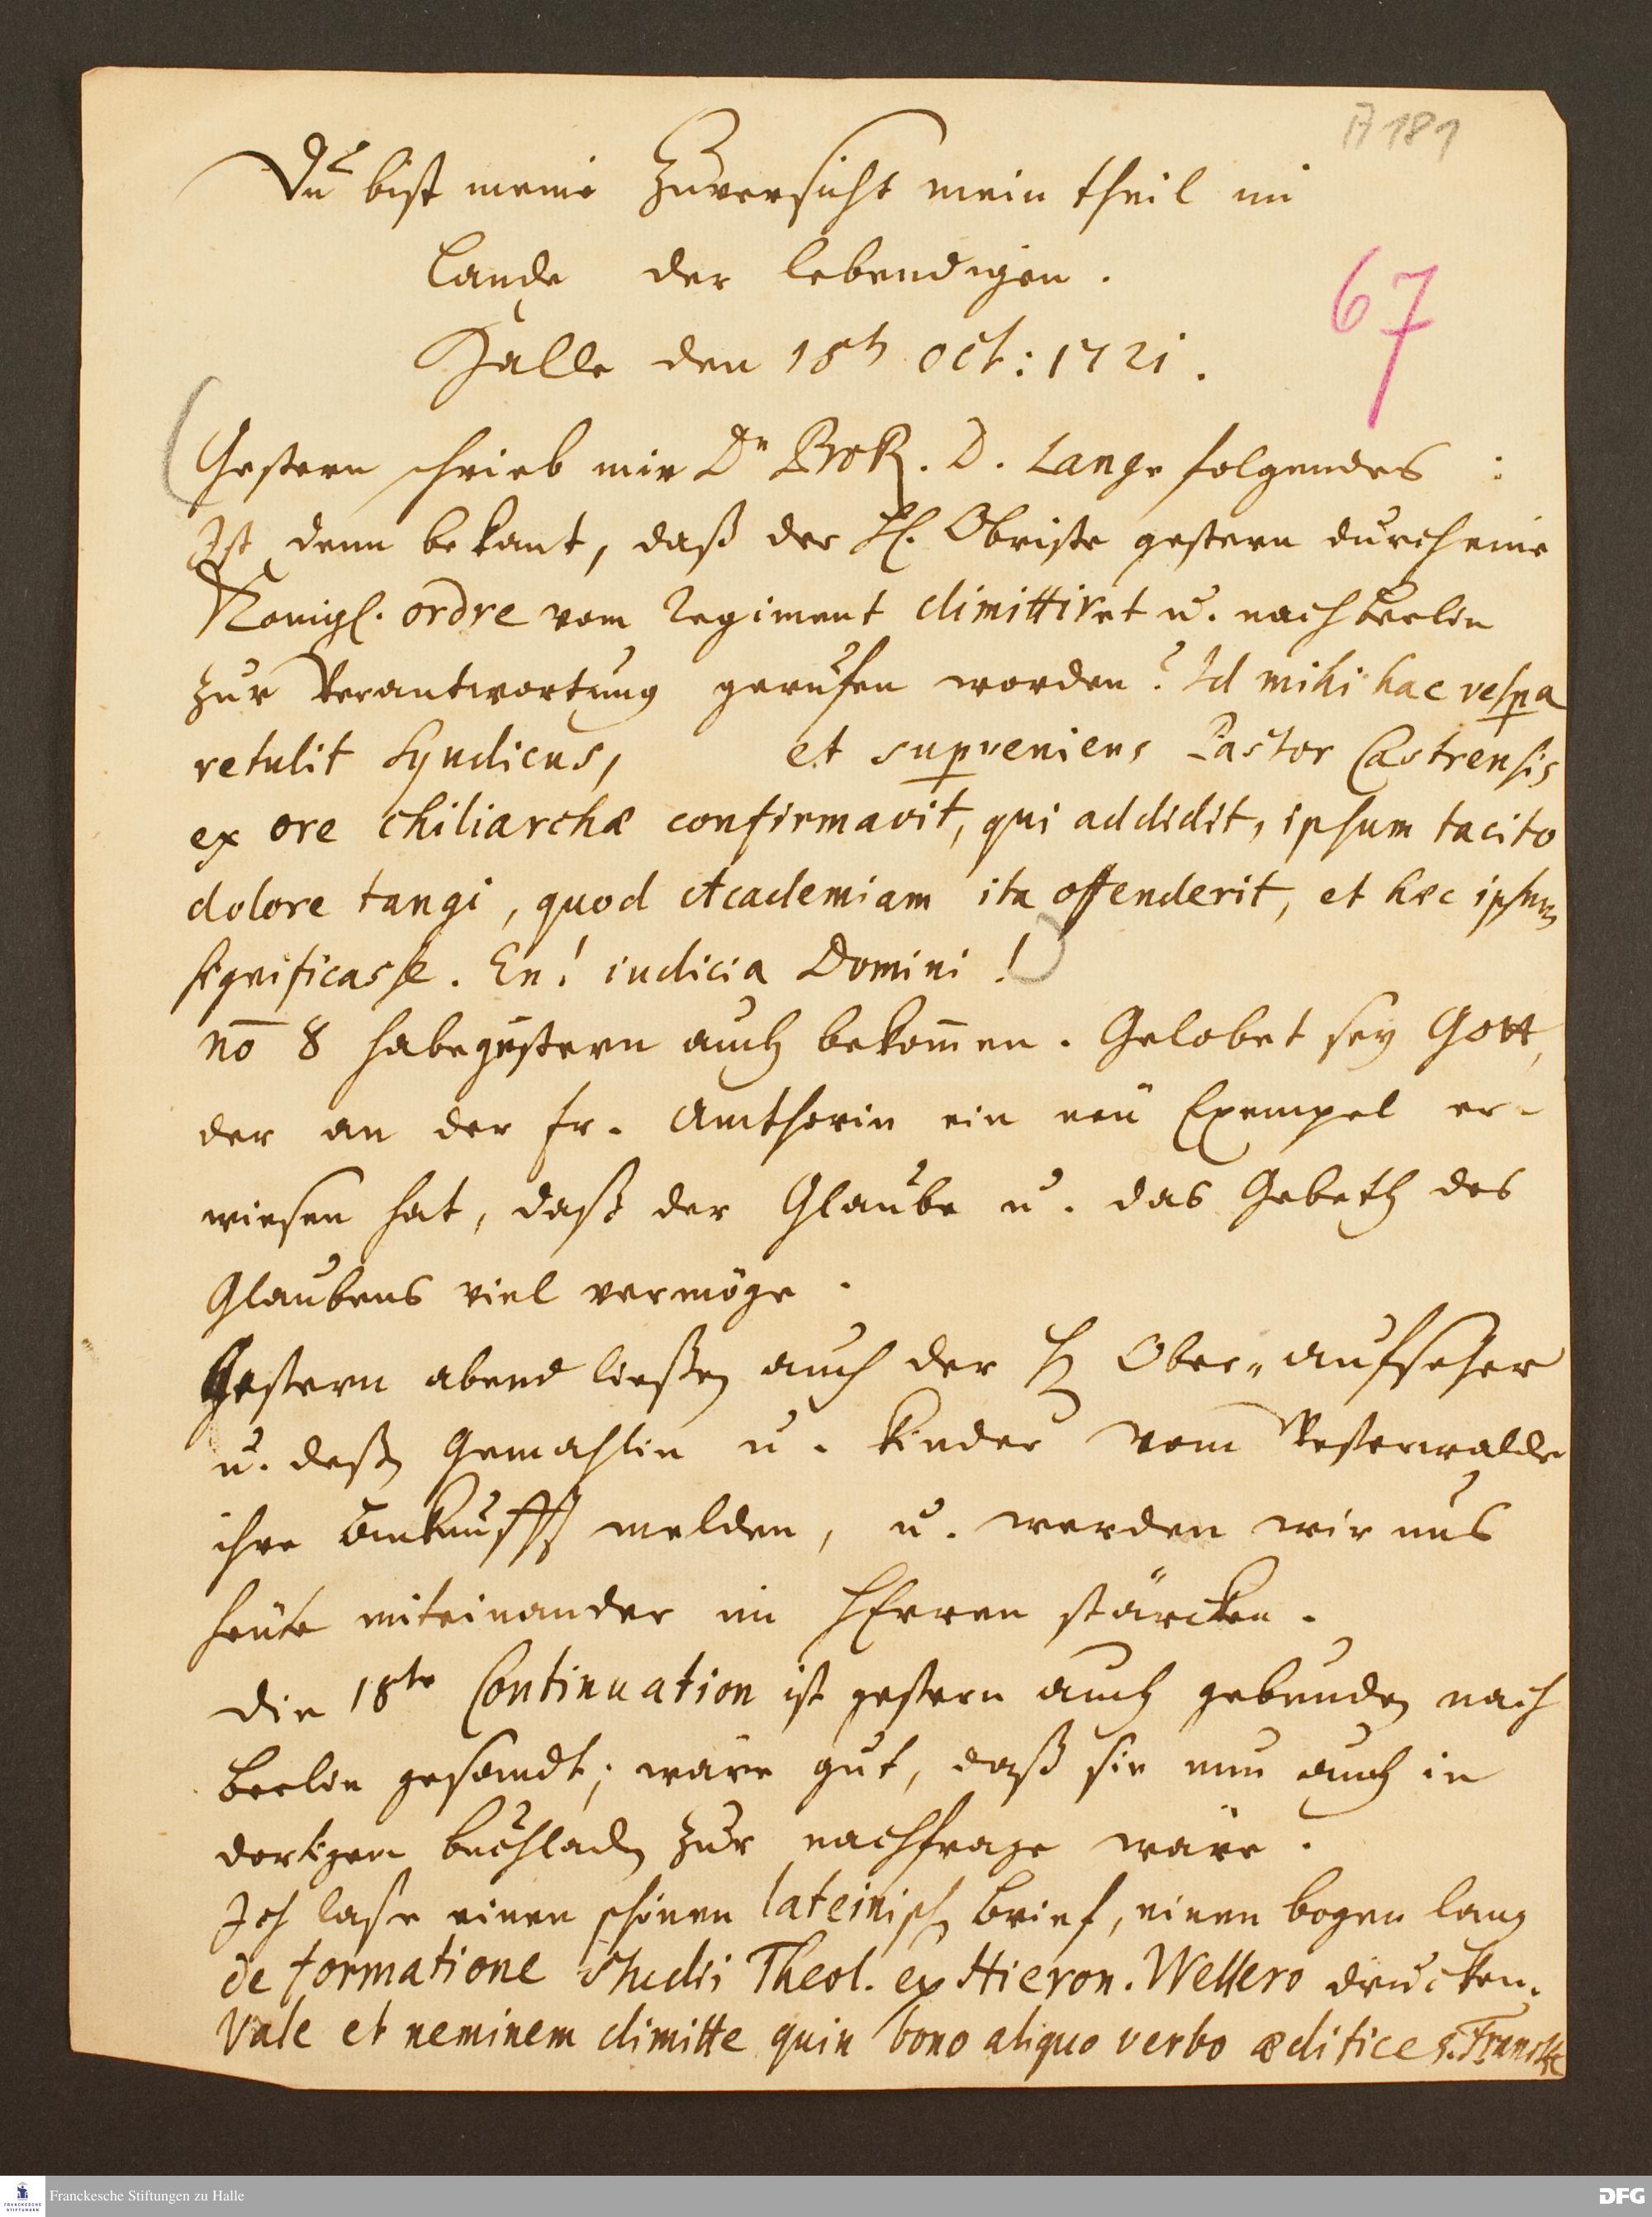 A 181
Du bist meine Zuversicht mein theil im
Lande der lebendigen.
67
Halle den 18th Oct: 1721.
Gestern schrieb mir Dn ProR. D. Lange folgendes:
Ist denn bekant, daß der H. Obriste gestern durch eine
Konigl. ordre vom Regiment dimittiret u. nach Berlin
zur Verantwortung geruffen worden? Id mihi hac vespa
retulit Syndicus, et supveniens Pastor Castrensis
ex ore chiliarchæ confirmavit, qui addidit, ipsum tacito
dolore tangi, quod Academiam ita offenderit, et hæc ipsum
significasse. En! iudicia Domini!
no 8 habe gestern auch bekommen. Gelobet sey Gott,
der an der Fr. Amthorin ein neü Exempel er-
wiesen hat, daß der Glaube u. das Gebeth des
Glaubens viel vermöge.
Gestern abend ließen auch der H Ober-aufseher
u. deßen Gemahlin u. Kinder vom Westerwalde
ihre Ankunfft melden, u. werden wir uns
heüte miteinander im HErren stärcken.
Die 18te Continuation ist gestern auch gebunden nach
Berlin gesandt; wäre gut, daß sie nun auch in
dortigen buchladen zur nachfrage wäre.
Ich lasse einen schönen lateinisch Brief, einen bogen lang
de formatione studii Theol. ex Hieron. Wellero drucken.
Vale et neminem dimitte quin bono aliquo verbo ædifices. Francke
Franckesche Stiftungen zu Halle
FRANCKESCHE
STIFTUNGEN
DFG